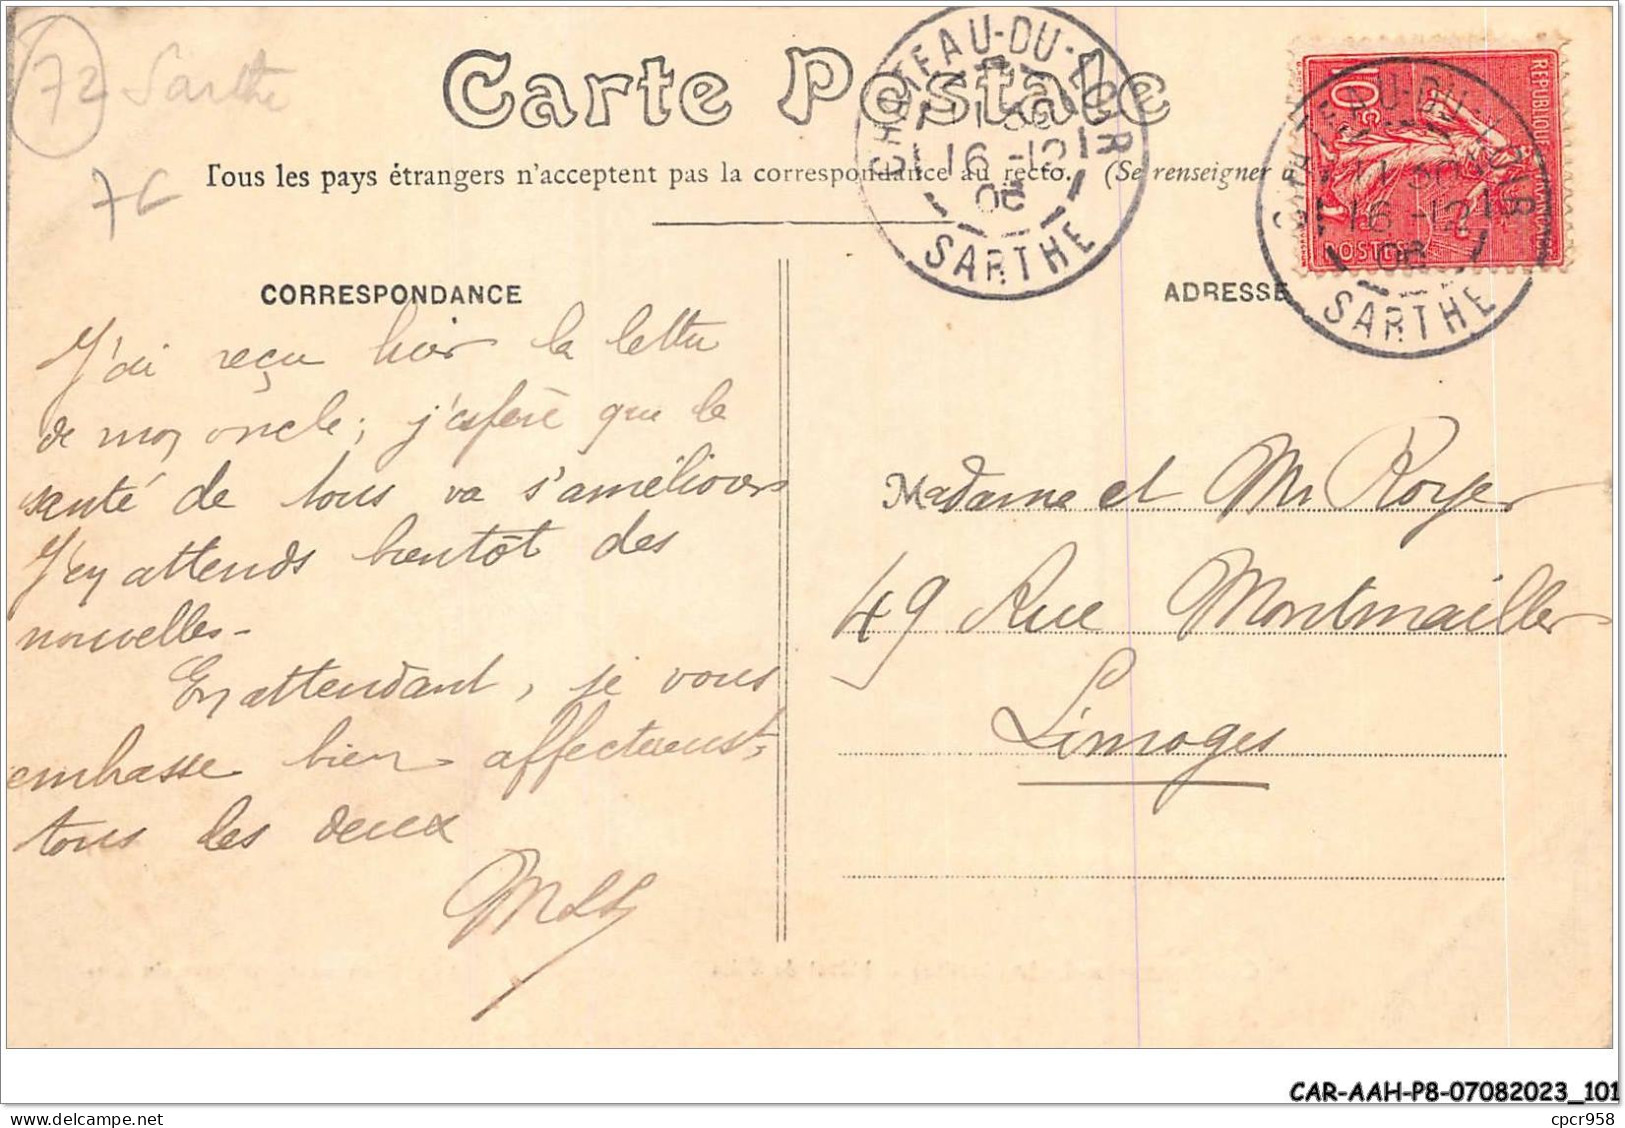 72 Sarthe
7C
Carte Postale
Tous les pays étrangers n'acceptent pas la correspondance au recto. (Se renseigner
CHATEAU-DU-LOIR
11 30
16 -12
06
SARTHE
REPUBLIQUE FRANCAISE
10c
POSTES
CHATEAU-DU-LOIR
11 30
16 -12
06
SARTHE
CORRESPONDANCE
J'ai reçu hier la lettre
de mon oncle; j'espère que la
santé de tous va s'améliorer
J'en attends bientôt des
nouvelles-
En attendant, je vous
embrasse bien affectueust
tous les deux
ADRESSE
Madame et Mr Royer
49 Rue Montmailler
Limoges
CAR-AAH-P8-07082023_101
cpcr958